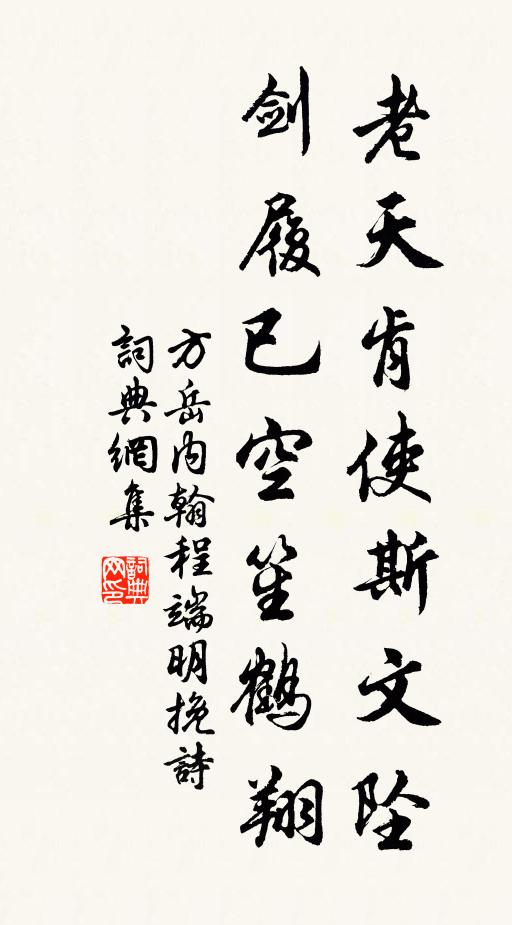 老天肯使斯文坠
剑履已空笙鹤翔
方岳内翰程端明挽詩
詞典網集
詞典网印